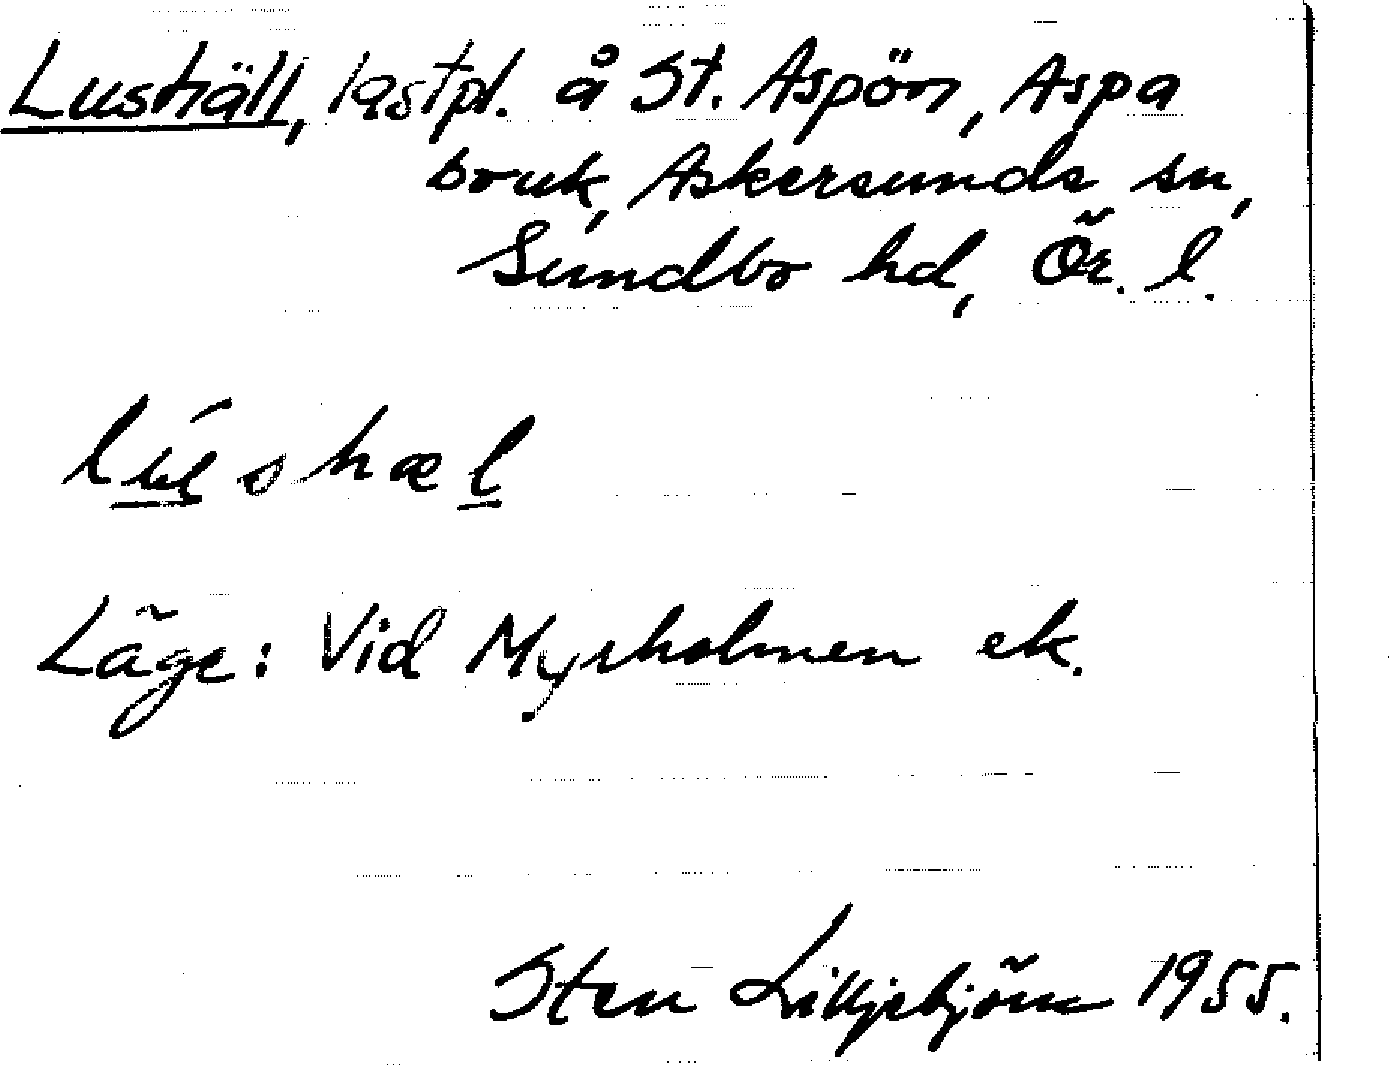 Lushäll, lastpl. å St. Aspön, Aspa
bruk, Askersunds sn,
Sundbo hd, Ör. l.
lúshæl
Läge: Vid Myrholmen ek.
Sten Lilljebjörn 1955.